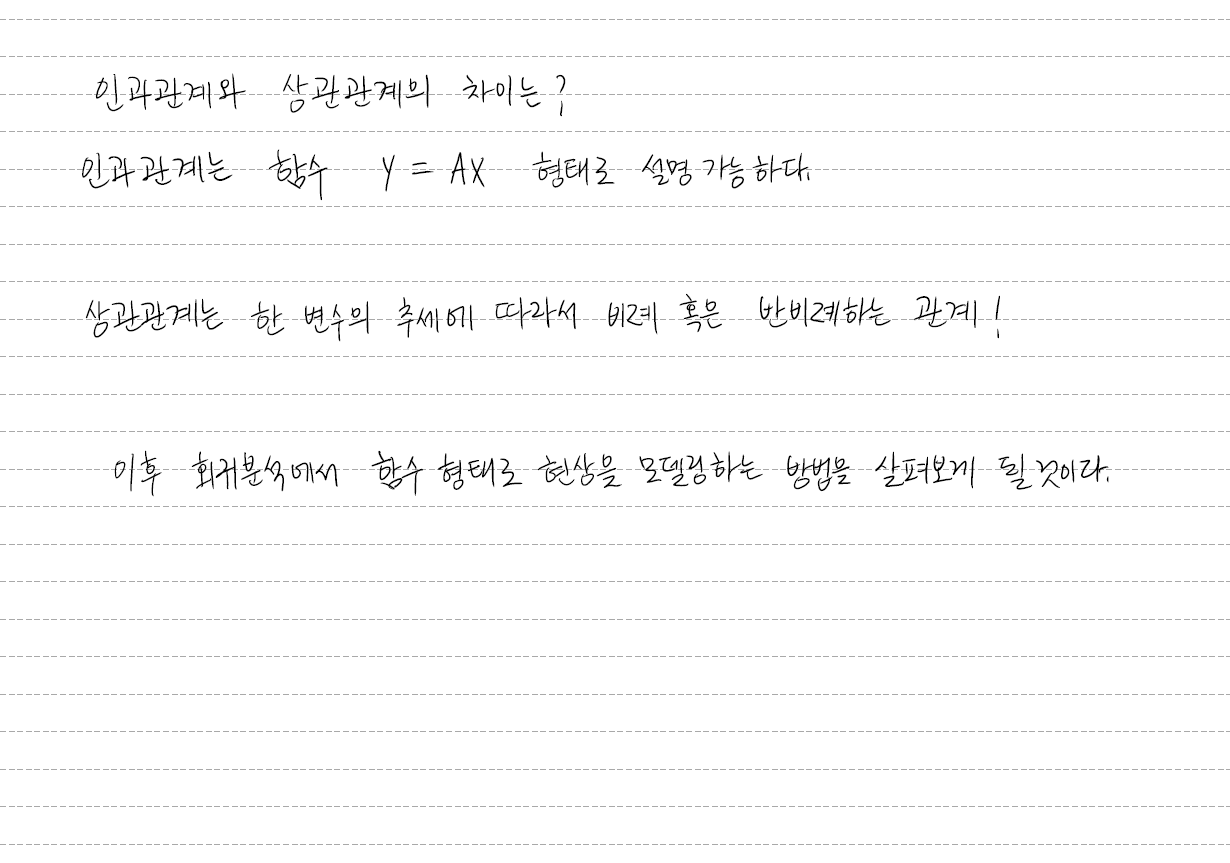 인과관계와 상관관계의 차이는?
인과관계는 함수 Y = AX 형태로 설명 가능하다.
상관관계는 한 변수의 추세에 따라서 비례 혹은 반비례하는 관계!
이후 회귀분석에서 함수 형태로 현상을 모델링하는 방법을 살펴보게 될 것이다.